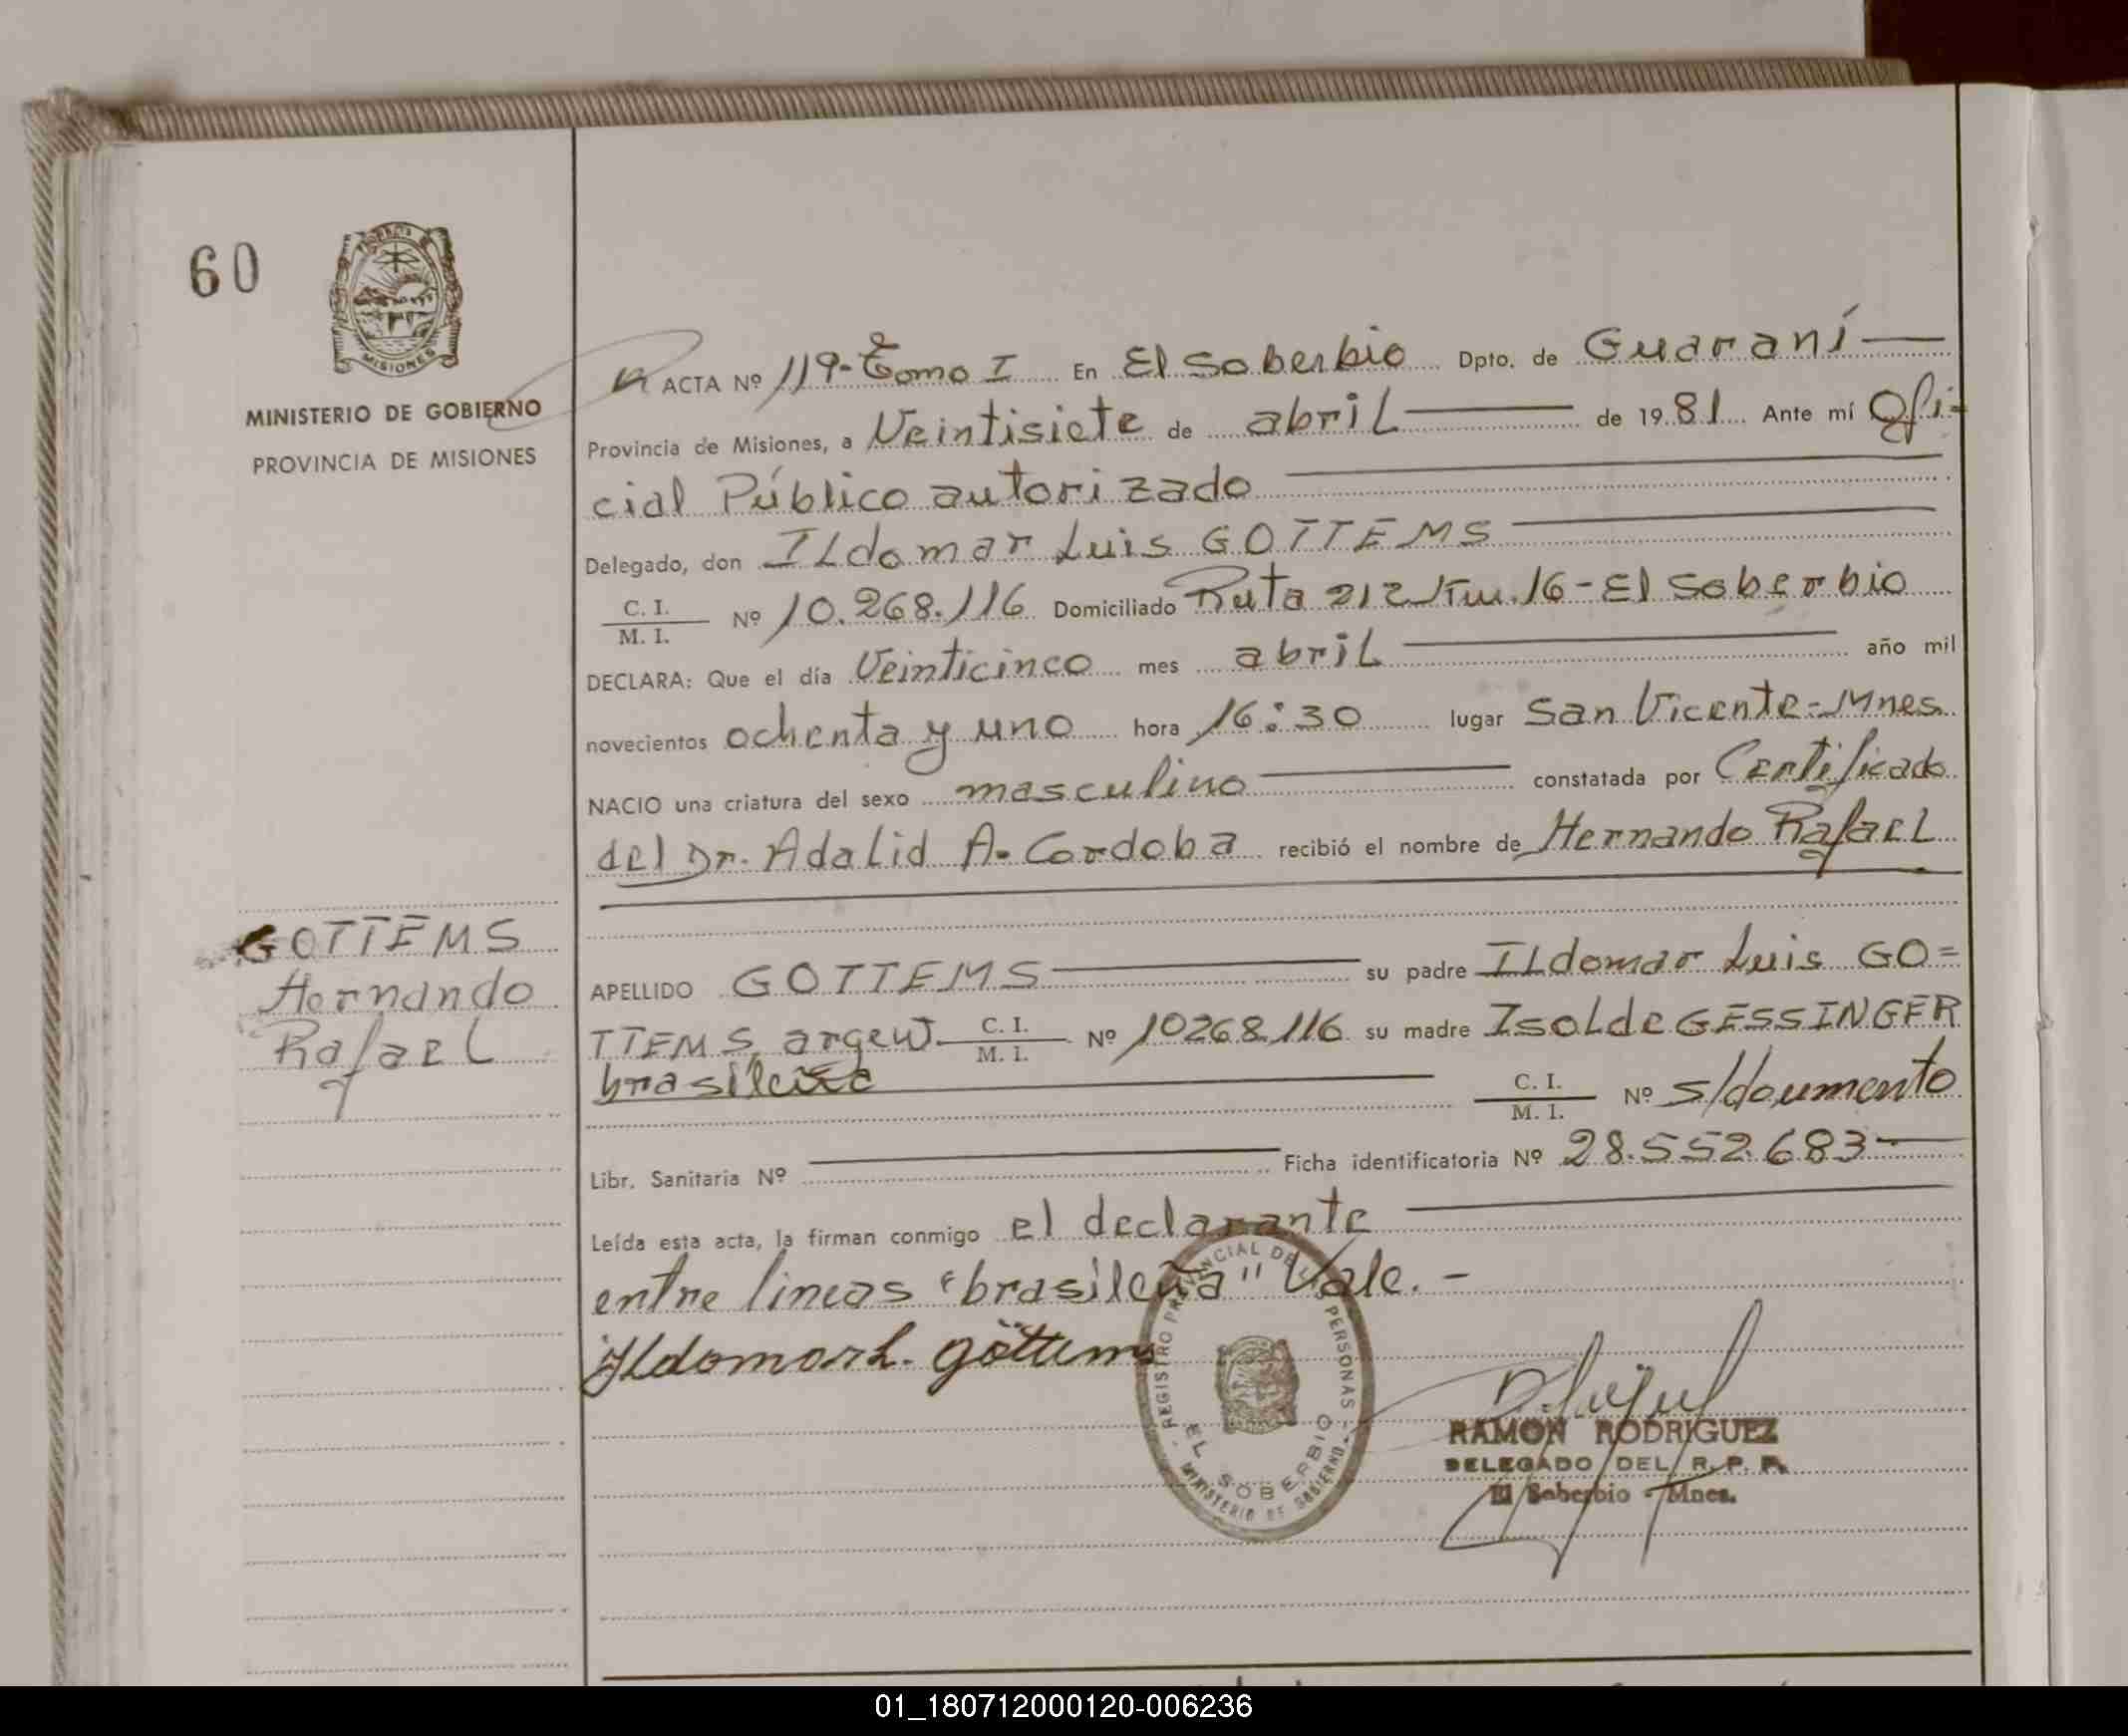 60
MISIONES
MINISTERIO DE GOBIERNO
PROVINCIA DE MISIONES
ACTA Nº 119-Tomo I En El Soberbio Dpto. de Guaraní
Provincia de Misiones, a Veintisiete de abril de 1981 Ante mí Ofi-
cial Público autorizado
Delegado, don ILdomar Luis GOTTEMS
C. I.
M. I. Nº 10.268.116 Domiciliado Ruta 212 Km. 16-El Soberbio
DECLARA: Que el día Veinticinco mes abril año mil
novecientos ochenta y uno hora 16:30 lugar San Vicente-Mnes
NACIO una criatura del sexo masculino constatada por Certificado
del Dr. Adalid A. Cordoba recibió el nombre de Hernando Rafael
GOTTEMS
Hernando
Rafael
APELLIDO GOTTEMS su padre ILdomar Luis GO=
TTEMS, argent. C. I. M. I. Nº 10268.116 su madre Isolde GESSINGER
brasileña C. I. M. I. Nº s/documento
Libr. Sanitaria Nº Ficha identificatoria Nº 28.552.683
Leída esta acta, la firman conmigo el declarante
entre lineas "brasileña" Vale.-
Ildomar L. göttems
REGISTRO PROVINCIAL DE LAS PERSONAS
EL SOBERBIO
MINISTERIO DE GOBIERNO
RAMON RODRIGUEZ
DELEGADO DEL R. P. P.
El Soberbio - Mnes.
01_180712000120-006236